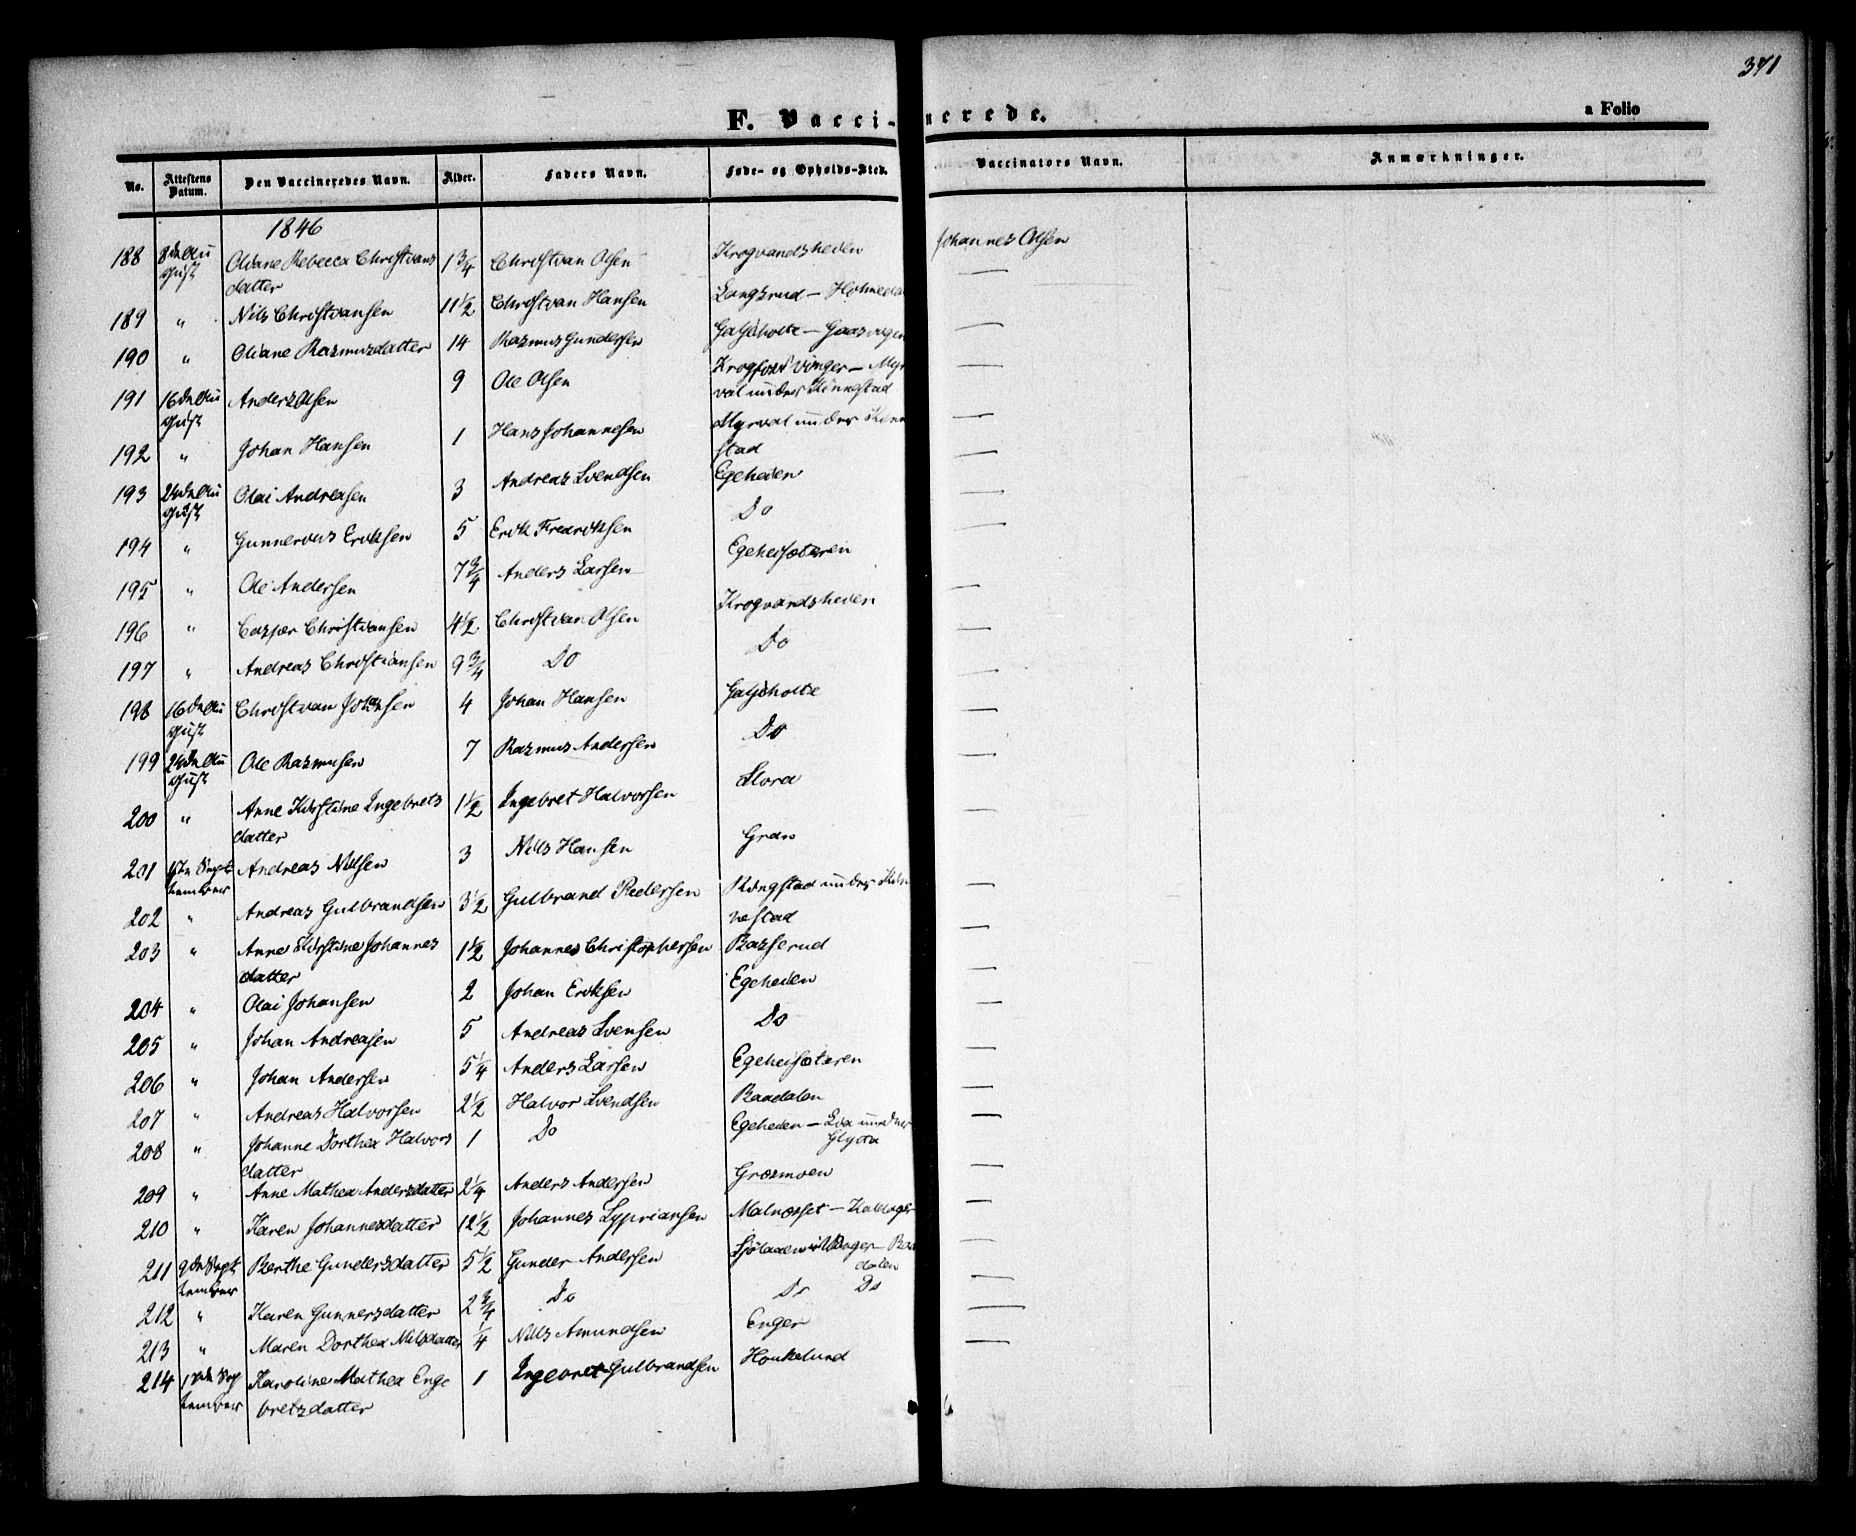 371
F. Vaccinerede.
a Folio
No. | Attestens Datum. | Den Vaccineredes Navn. | Alder. | Faders Navn. | Føde- og Opholds-Sted. | Vaccinators Navn. | Anmærkninger.
1846
188 | 8de Au gust | Oliane Rebecca Christians datter | 1 3/4 | Christian Olsen | Krogvandsheden | Johannes Olsen
189 | " | Nils Christiansen | 11 1/2 | Christian Hansen | Langsrud – | —
190 | " | Oliane Rasmusdatter | 14 | Rasmus Gundersen | Galsholte – Gaasvigen | —
191 | 16de Au gust | Anders Olsen | 9 | Ole Olsen | Krogfoss Vinger – Myr val under Kinnestad | —
192 | " | Johan Hansen | 1 | Hans Johannesen | Myrval under Kinne stad | —
193 | 24de Au gust | Olai Andreasen | 3 | Andreas Svendsen | Egeheden | —
194 | " | Gunnerius Eriksen | 5 | Erik Fredriksen | Do | —
195 | " | Ole Andersen | 7 3/4 | Anders Larsen | Egeheisæteren | —
196 | " | Casper Christiansen | 4 1/2 | Christian Olsen | Krogvandsheden | —
197 | " | Andreas Christiansen | 9 3/4 | Do | Do | —
198 | 16de Au gust | Christian Johansen | 4 | Johan Hansen | Galsholte | —
199 | 24de Au gust | Ole Rasmusen | 7 | Rasmus Andersen | Do | —
200 | " | Anne Kirstine Ingebrets datter | 1 1/2 | Ingebret Halvorsen | Slora | —
201 | Sep tember | Andreas Nilsen | 3 | Nils Hansen | Gran | —
202 | " | Andreas Gulbrandsen | 3 1/2 | Gulbrand Pedersen | Ringstad under Kin nestad | —
203 | " | Anne Kirstine Johannes datter | 1 1/2 | Johannes Christophersen | Basserud | —
204 | " | Olai Johansen | 2 | Johan Eriksen | Egeheden | —
205 | " | Johan Andreasen | 5 | Andreas Svensen | Do | —
206 | " | Johan Andersen | 5 1/4 | Anders Larsen | Egeheisæteren | —
207 | " | Andreas Halvorsen | 2 1/2 | Halvor Svendsen | Baadalen | —
208 | " | Johanne Dorthea Halvors datter | 1 | Do | Egeheden – under | —
209 | " | Anne Mathea Andersdatter | 2 1/4 | Anders Andersen | Græsmoen | —
210 | " | Karen Johannesdatter | 12 1/2 | Johannes Sypriansen | Malnæsset – | —
211 | 9de Sept tember | Berthe Gundersdatter | 5 1/2 | Gunder Andersen | i Vinger – Baa dalen | —
212 | " | Karen Gunnersdatter | 2 3/4 | Do | Do Do | —
213 | " | Maren Dorthea Nilsdatter | 1/4 | Nils Amundsen | Enger | —
214 | Sep tember | Karoline Mathea Enge bretsdatter | 1 | Ingebret Gulbrandsen | Houkelund | —